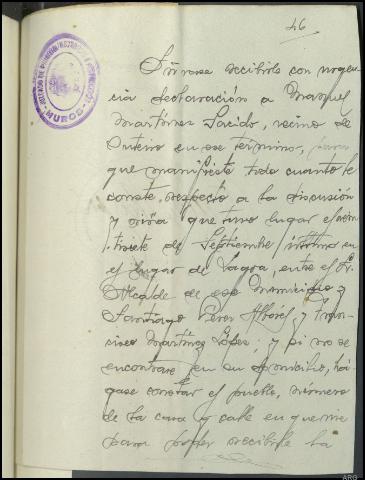 46
JUZGADO DE PRIMERA INSTANCIA E INSTRUCCIÓN
MUROS
Sírvase recibirle con urgen-
cia declaración a Manuel
Martínez Lacido, vecino de
Outeiro en ese término, para
que manifieste todo cuanto le
conste respecto a la discusión
y riña que tuvo lugar el vein-
tisiete de Septiembre último en
el lugar de Lagoa, entre el Sr.
Alcalde de ese Municipio y
Santiago Perez y Fran-
cisco Martínez López; y si no se
encontrase en su domicilio, há-
gase constar el pueblo, número
de la casa y calle en que vive
para poder recibirle la
ARG